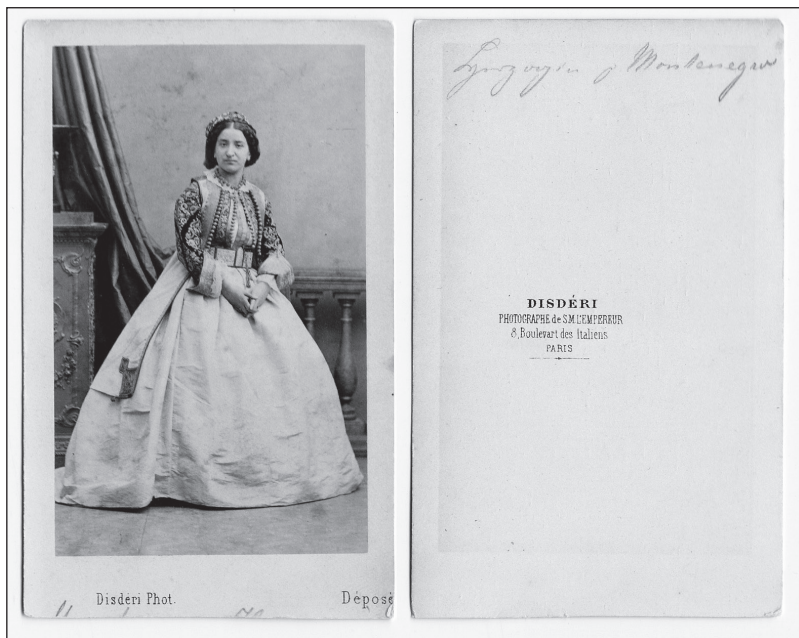 Disdéri Phot.
Déposé
Montenegro
DISDÉRI
PHOTOGRAPHE de S.M. L'EMPEREUR
8, Boulevart des Italiens
PARIS